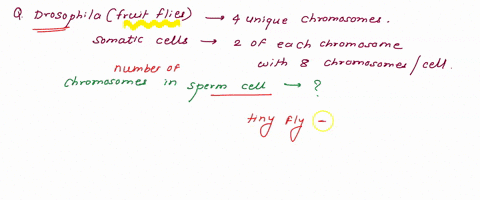 Q. Drosophila (fruit flies) → 4 unique chromosomes.
somatic cells → 2 of each chromosome
with 8 chromosomes/cell.
number of
chromosomes in sperm cell → ?
tiny fly -